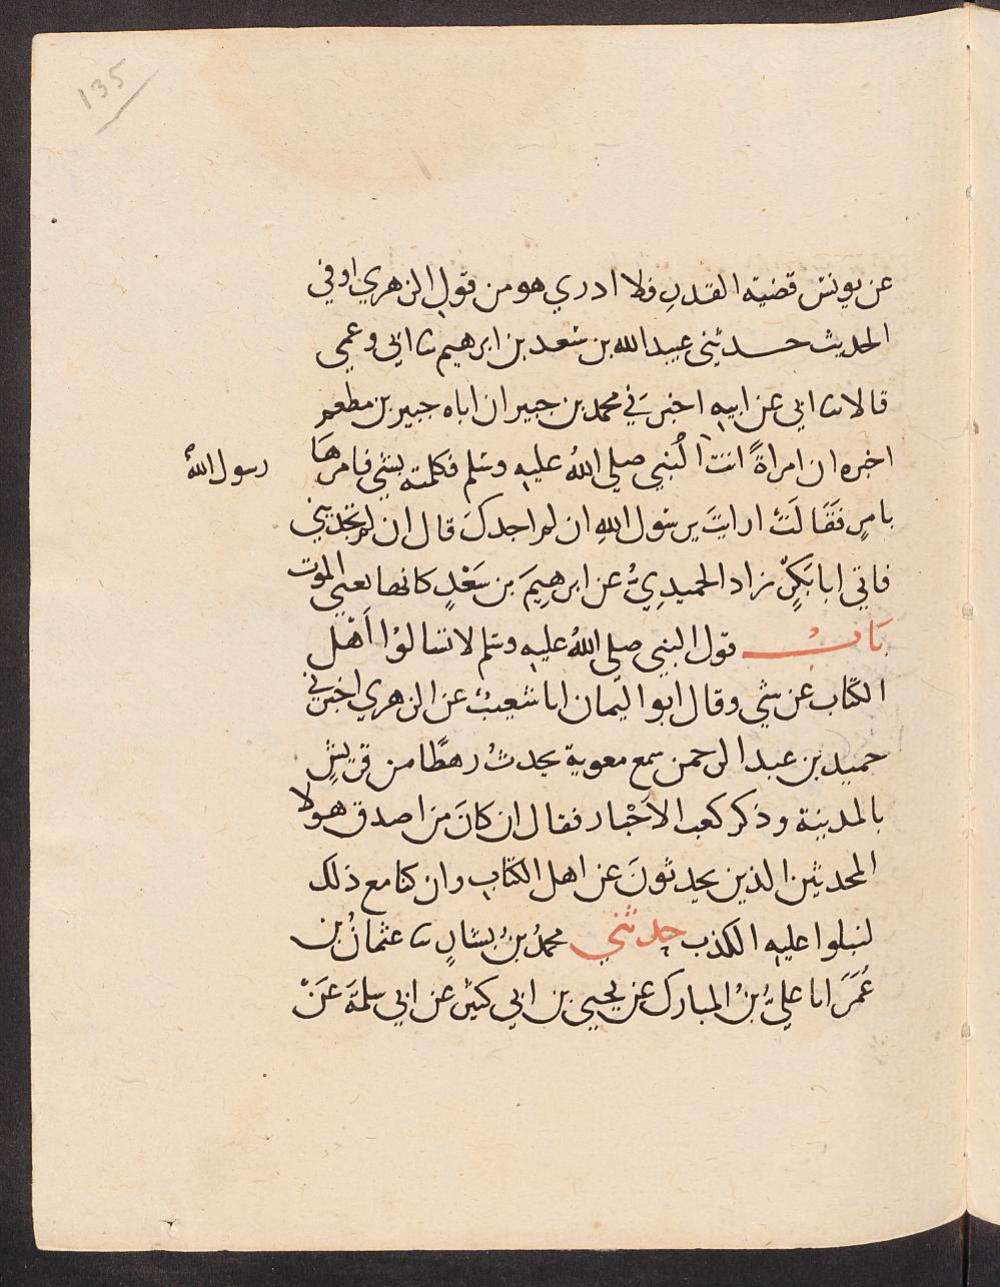 135
عن يونس قضية القدر فلا ادري هو من قول الزهري او في
الحديث حدثني عبيد الله بن سعد بن ابرهيم ثنا ابي وعمي
قالا ثنا ابي عن ابيه اخبرَني محمد بن جبير ان اباه جبير بن مطعم
اخبره ان امراةً اتت النبي صلى اللهُ عليه وسلم فكلمته بشيٍ فامرهَا
رسول اللهُ
بامرٍ فَقَالَتْ ارايتَ يرسول اللهِ ان لم اجدكَ قال ان لم تجديني
فاتي ابا بَكرٍ زاد الحميدِيُّ عن ابرهيمَ بن سَعْدٍ كانها تعني الموت
بَابْ قول النبي صلى اللهُ عليه وسلم لا تسالوْا اَهْل
الكتاب عن شي وقال ابو اليمان انا شعيبْ عن الزهري اخبرني
حميد بن عبد الرحمن سمع معوية يحدثُ رهطًا من قريشٍ
بالمدينة وذكر كعب الاَحْبار فقال ان كانَ من اصدق هولا
المحدثين الذين يحدثونَ عن اهل الكتاب وان كنا مع ذلك
لنبلوا عليه الكذب حدثني محمدُ بنُ بشارٍ ثنا عثمانُ بن
عُمَرَ انا عليُّ بنُ المبارك عن يحيى بن ابي كثير عن ابي سلمَة عَنْ